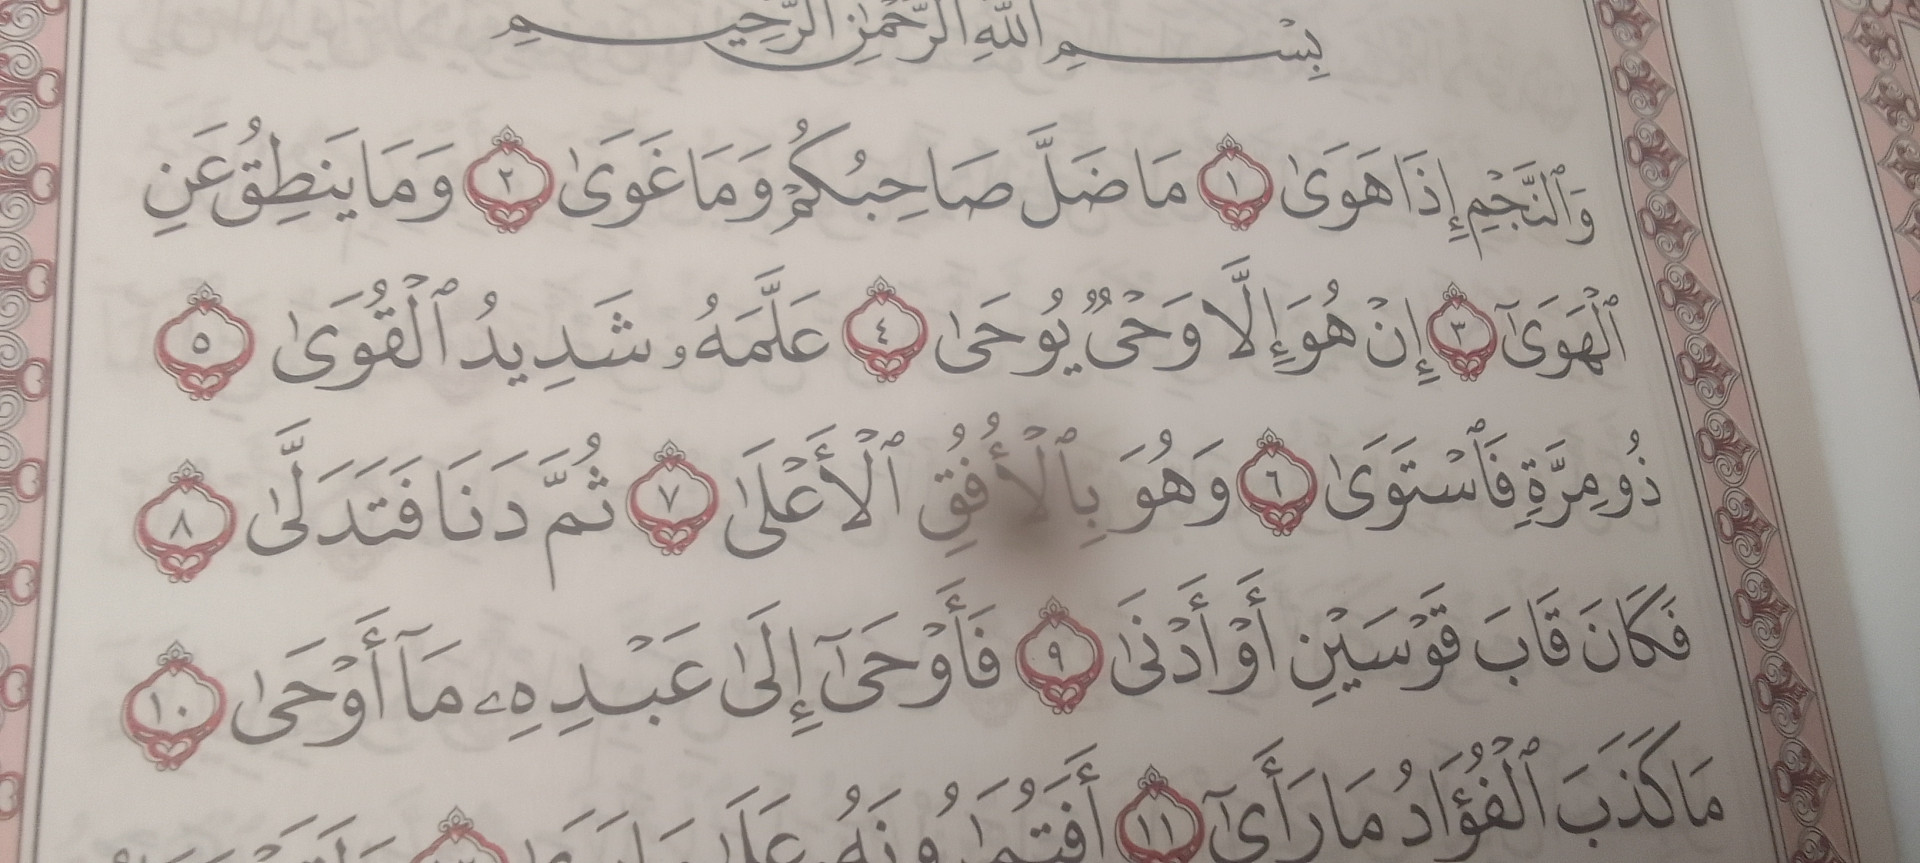 بِسْمِ اللَّهِ الرَّحْمَٰنِ الرَّحِيمِ
وَٱلنَّجْمِ إِذَا هَوَىٰ ١ مَا ضَلَّ صَاحِبُكُمْ وَمَا غَوَىٰ ٢ وَمَا يَنطِقُ عَنِ
ٱلْهَوَىٰٓ ٣ إِنْ هُوَ إِلَّا وَحْىٌ يُوحَىٰ ٤ عَلَّمَهُۥ شَدِيدُ ٱلْقُوَىٰ ٥
ذُو مِرَّةٍ فَٱسْتَوَىٰ ٦ وَهُوَ بِٱلْأُفُقِ ٱلْأَعْلَىٰ ٧ ثُمَّ دَنَا فَتَدَلَّىٰ ٨
فَكَانَ قَابَ قَوْسَيْنِ أَوْ أَدْنَىٰ ٩ فَأَوْحَىٰٓ إِلَىٰ عَبْدِهِۦ مَآ أَوْحَىٰ ١٠
مَا كَذَبَ ٱلْفُؤَادُ مَا رَأَىٰٓ ١١ أَفَتُمَٰرُونَهُۥ عَلَىٰ